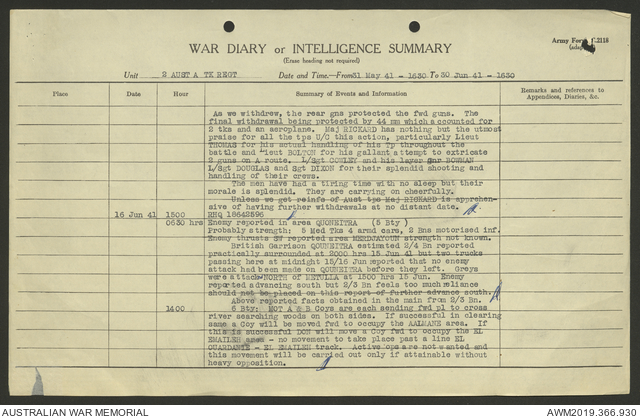 Army Form C.2118
WAR DIARY or INTELLIGENCE SUMMARY
(Erase heading not required)
Unit 2 AUST A TK REGT Date and Time.—From 31 May 41 - 1630 To 30 Jun 41 - 1630
Place Date Hour Summary of Events and Information Remarks and references to Appendices, Diaries, &c.
As we withdrew, the rear gns protected the fwd guns. The
final withdrawal being protected by 44 mm which accounted for
2 tks and an aeroplane. Maj RICKARD has nothing but the utmost
praise for all the tps U/C this action, particularly Lieut
THOMAS for his actual handling of his Tp throughout the
battle and Lieut BOLTON for his gallant attempt to extricate
2 guns on A route. L/Sgt COWLEY and his layer Gnr BOWMAN
L/Sgt DOUGLAS and Sgt DIXON for their splendid shooting and
handling of their crews.
The men have had a tiring time with no sleep but their
morale is splendid. They are carrying on cheerfully.
Unless we get reinfs of Aust tps Maj RICKARD is apprehen-
sive of having further withdrawals at no distant date.
16 Jun 41 1500 RHQ 18642596
0630 hrs Enemy reported in area QUONEITRA (5 Bty)
Probably strength: 5 Med Tks 4 armd cars, 2 Bns motorised inf.
Enemy thrusts SW reported area MERDJAYOUN strength not known.
British Garrison QOUNEITRA estimated 2/4 Bn reported
practically surrounded at 2000 hrs 15 Jun 41 but two trucks
passing here at midnight 15/16 Jun reported that no enemy
attack had been made on QOUNEITRA before they left. Greys
were attack NORTH of METULLA at 1500 hrs 15 Jun. Enemy
reported advancing south but 2/3 Bn feels too much reliance
should not be placed on this report of further advance south.
Above reported facts obtained in the main from 2/3 Bn.
1400 6 Bty: NOT A & B Coys are each sending fwd pl to cross
river searching woods on both sides. If successful in clearing
same a Coy will be moved fwd to occupy the AALMANE area. If
this is successful DON will move a Coy fwd to occupy the EL
EMAILEH area - no movement to take place past a line EL
OUARDANIE - EL EMAILEH track. Active ops are not wanted and
this movement will be carried out only if attainable without
heavy opposition.
AUSTRALIAN WAR MEMORIAL
AWM2019.366.930